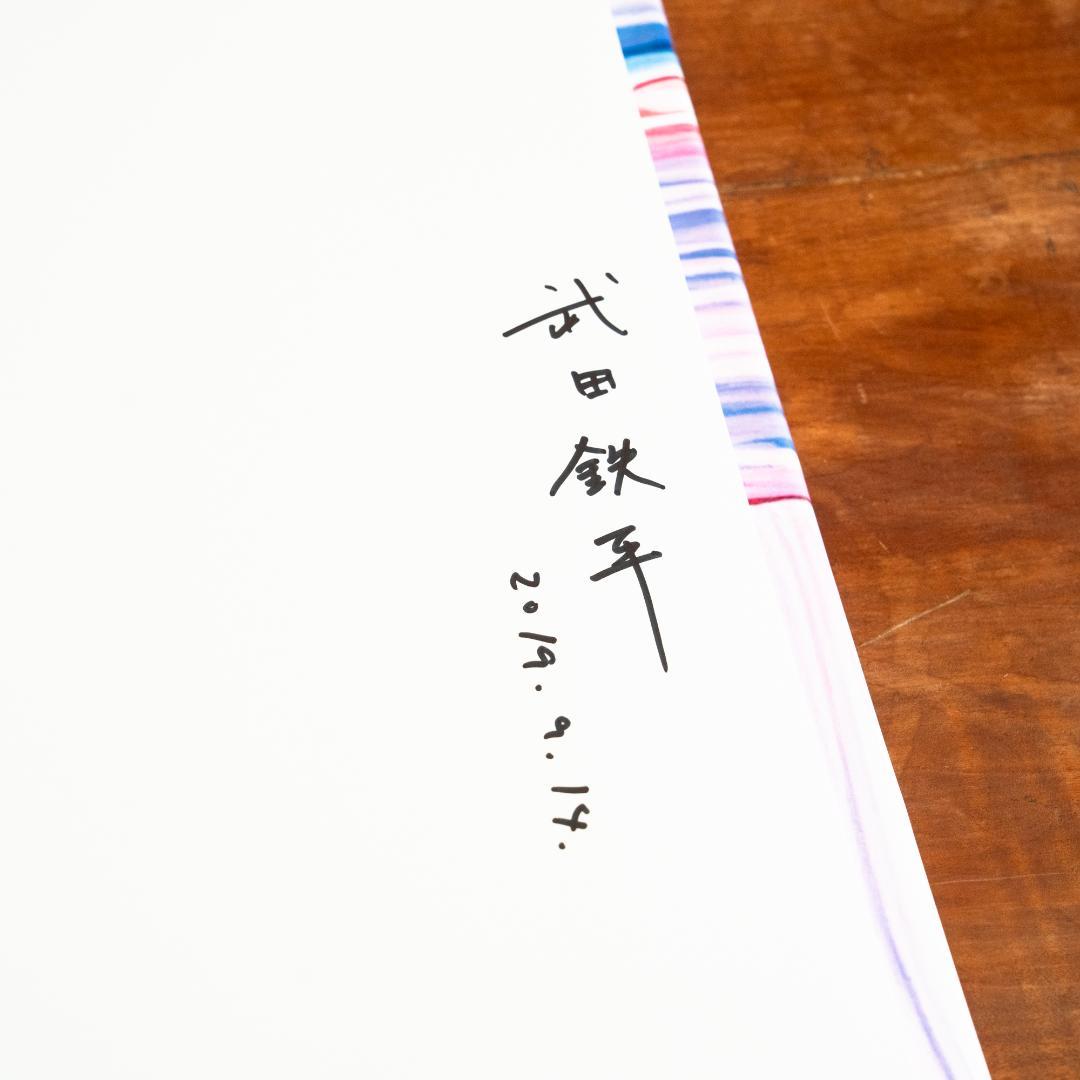 武田鉄平
2019.9.14.